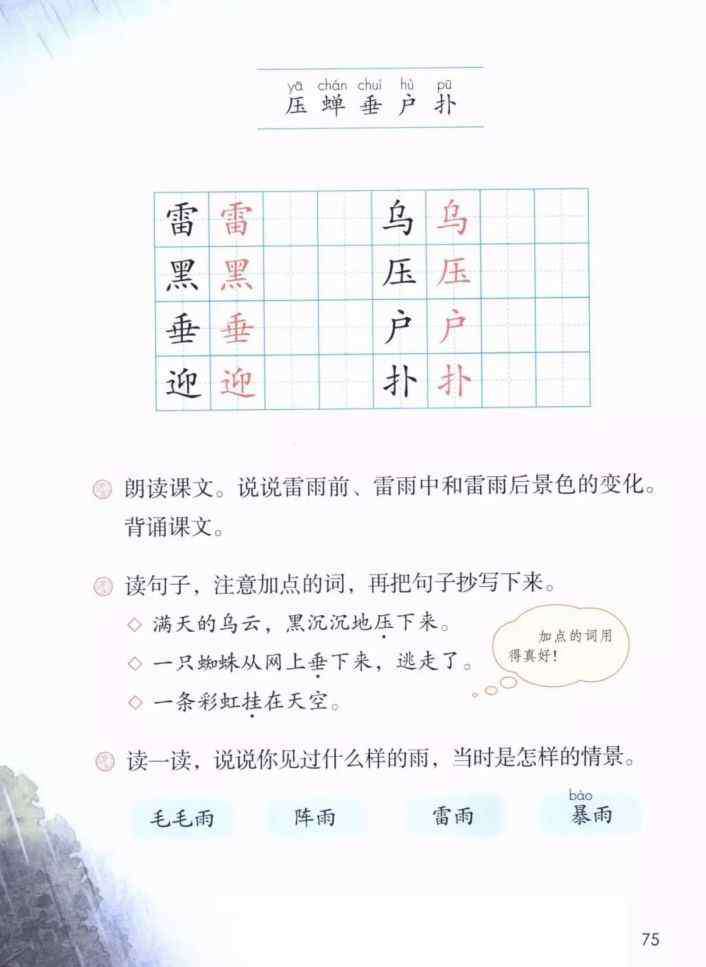 yā chán chuí hù pū
压 蝉 垂 户 扑
雷 雷 乌 乌
黑 黑 压 压
垂 垂 户 户
迎 迎 扑 扑
朗读课文。说说雷雨前、雷雨中和雷雨后景色的变化。
背诵课文。
读句子，注意加点的词，再把句子抄写下来。
◇ 满天的乌云，黑沉沉地压下来。
◇ 一只蜘蛛从网上垂下来，逃走了。
◇ 一条彩虹挂在天空。
加点的词用
得真好！
读一读，说说你见过什么样的雨，当时是怎样的情景。
bào
毛毛雨 阵雨 雷雨 暴雨
75